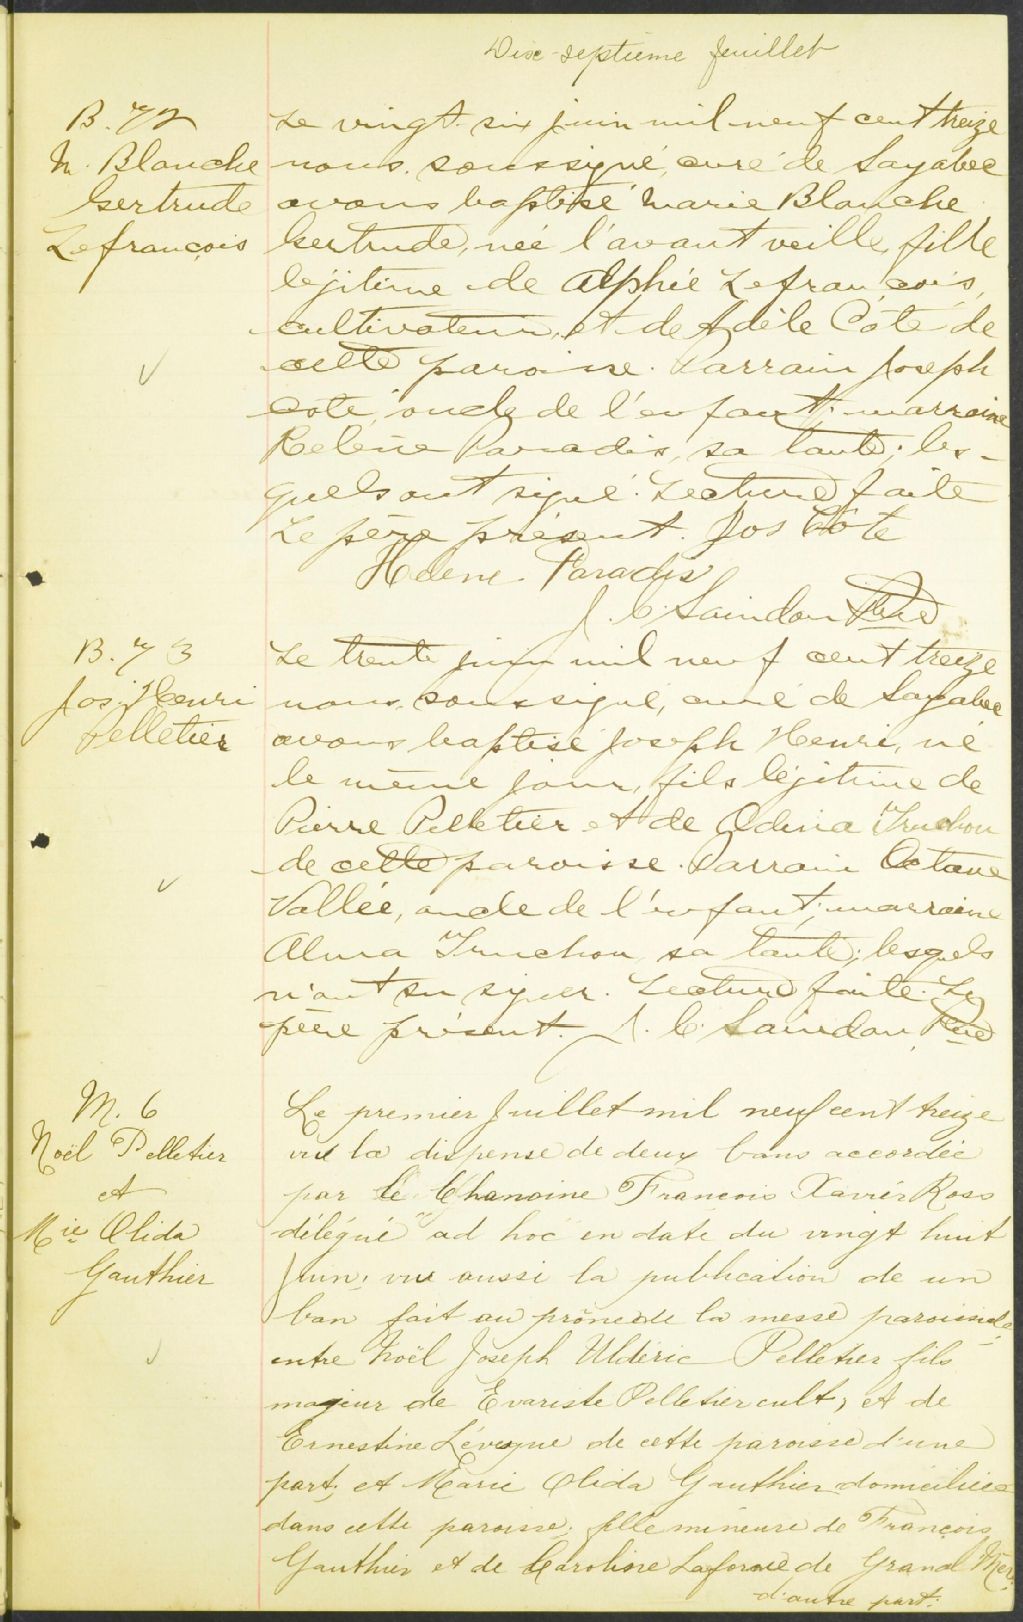 Dix-septième feuillet
B. 72
M. Blanche
Gertrude
Lefrançois
Le vingt-six juin mil neuf cent treize
nous, soussigné, curé de Sayabec
avons baptisé Marie Blanche
Gertrude, née l'avant veille, fille
légitime de Alphée Lefrançois,
cultivateur, et de Adèle Côté de
cette paroisse. Parrain Joseph
Coté, oncle de l'enfant; marraine
Helène Paradis, sa tante; les-
quels ont signé. Lecture faite
Le père présent. Jos Côté
Helene Paradis
J. C. Saindon Ptre
B. 73
Jos. Henri
Pelletier
Le trente juin mil neuf cent treize
nous, soussigné, curé de Sayabec
avons baptisé Joseph Henri, né
le même jour, fils légitime de
Pierre Pelletier et de Odina Truchon
de cette paroisse. Parrain Octave
Vallée, oncle de l'enfant; marraine
Alma Truchon, sa tante; lesquels
n'ont su signer. Lecture faite. Le
père présent. J. C. Saindon, Ptre
M. 6
Noël Pelletier
et
Mie Olida
Gauthier
Le premier Juillet mil neuf cent treize
vu la dispense de deux bans accordée
par le Chanoine François Xavier Ross
délégué "ad hoc" en date du vingt huit
Juin; vu aussi la publication de un
ban fait au prône de la messe paroissiale
entre Noël Joseph Uldéric Pelletier fils
majeur de Evariste Pelletier cult, et de
Ernestine Lévesque de cette paroisse d'une
part; et Marie Olida Gauthier domiciliée
dans cette paroisse, fille mineure de François
Gauthier et de Caroline Laforne de Grand Mère
d'autre part: